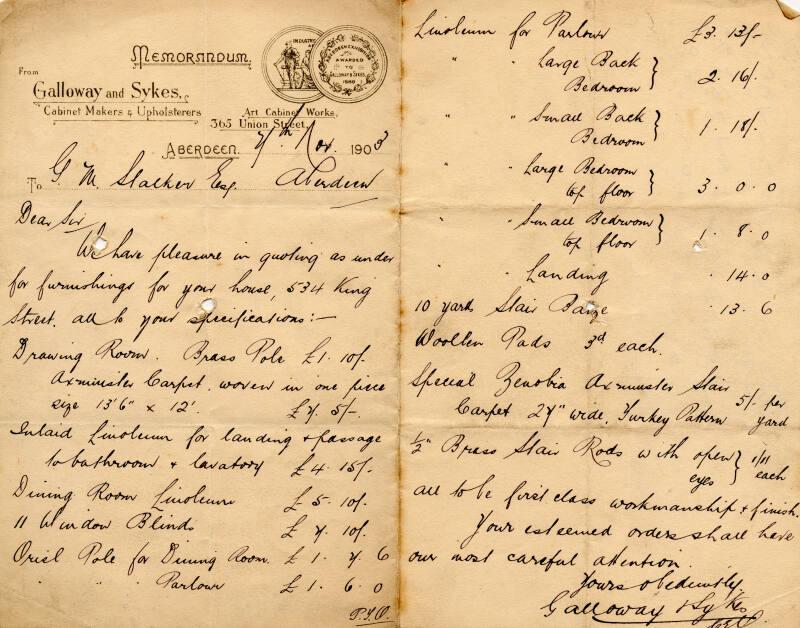 Memorandum.
From
Galloway and Sykes,
Cabinet Makers & Upholsterers
INDUSTRY
ABERDEEN EXHIBITION
AWARDED
TO
GALLOWAY & SYKES
Art Cabinet Works,
365 Union Street,
Aberdeen. 7th Nov. 1903
To G. M. Stalker Esq. Aberdeen
Dear Sir
We have pleasure in quoting as under
for furnishings for your house, 534 King
Street. all to your specifications:—
Drawing Room. Brass Pole £1. 10/-
Axminster Carpet. woven in one piece
size 13'6" x 12'. £7. 5/-
Inlaid Linoleum for landing & passage
to bathroom & lavatory £4. 15/-
Dining Room Linoleum £5. 10/-
11 Window Blinds £7. 10/-
Oriel Pole for Dining Room. £1. 7. 6
" " " Parlour £1. 6. 0
P.T.O.
Linoleum for Parlour £3. 13/-
" " Large Back
Bedroom } 2. 16/-
" " Small Back
Bedroom } 1. 18/-
" " Large Bedroom
top floor } 3. 0. 0
" " Small Bedroom
top floor } 1. 8. 0
" " Landing . 14. 0
10 yards Stair Baize . 13. 6
Woollen Pads 3d each.
Special Zenobia Axminster Stair
Carpet 27" wide, Turkey Pattern 5/- per yard
½" Brass Stair Rods with open
eyes } 1/11 each
all to be first class workmanship & finish.
Your esteemed orders shall have
our most careful attention.
Yours obediently,
Galloway & Sykes